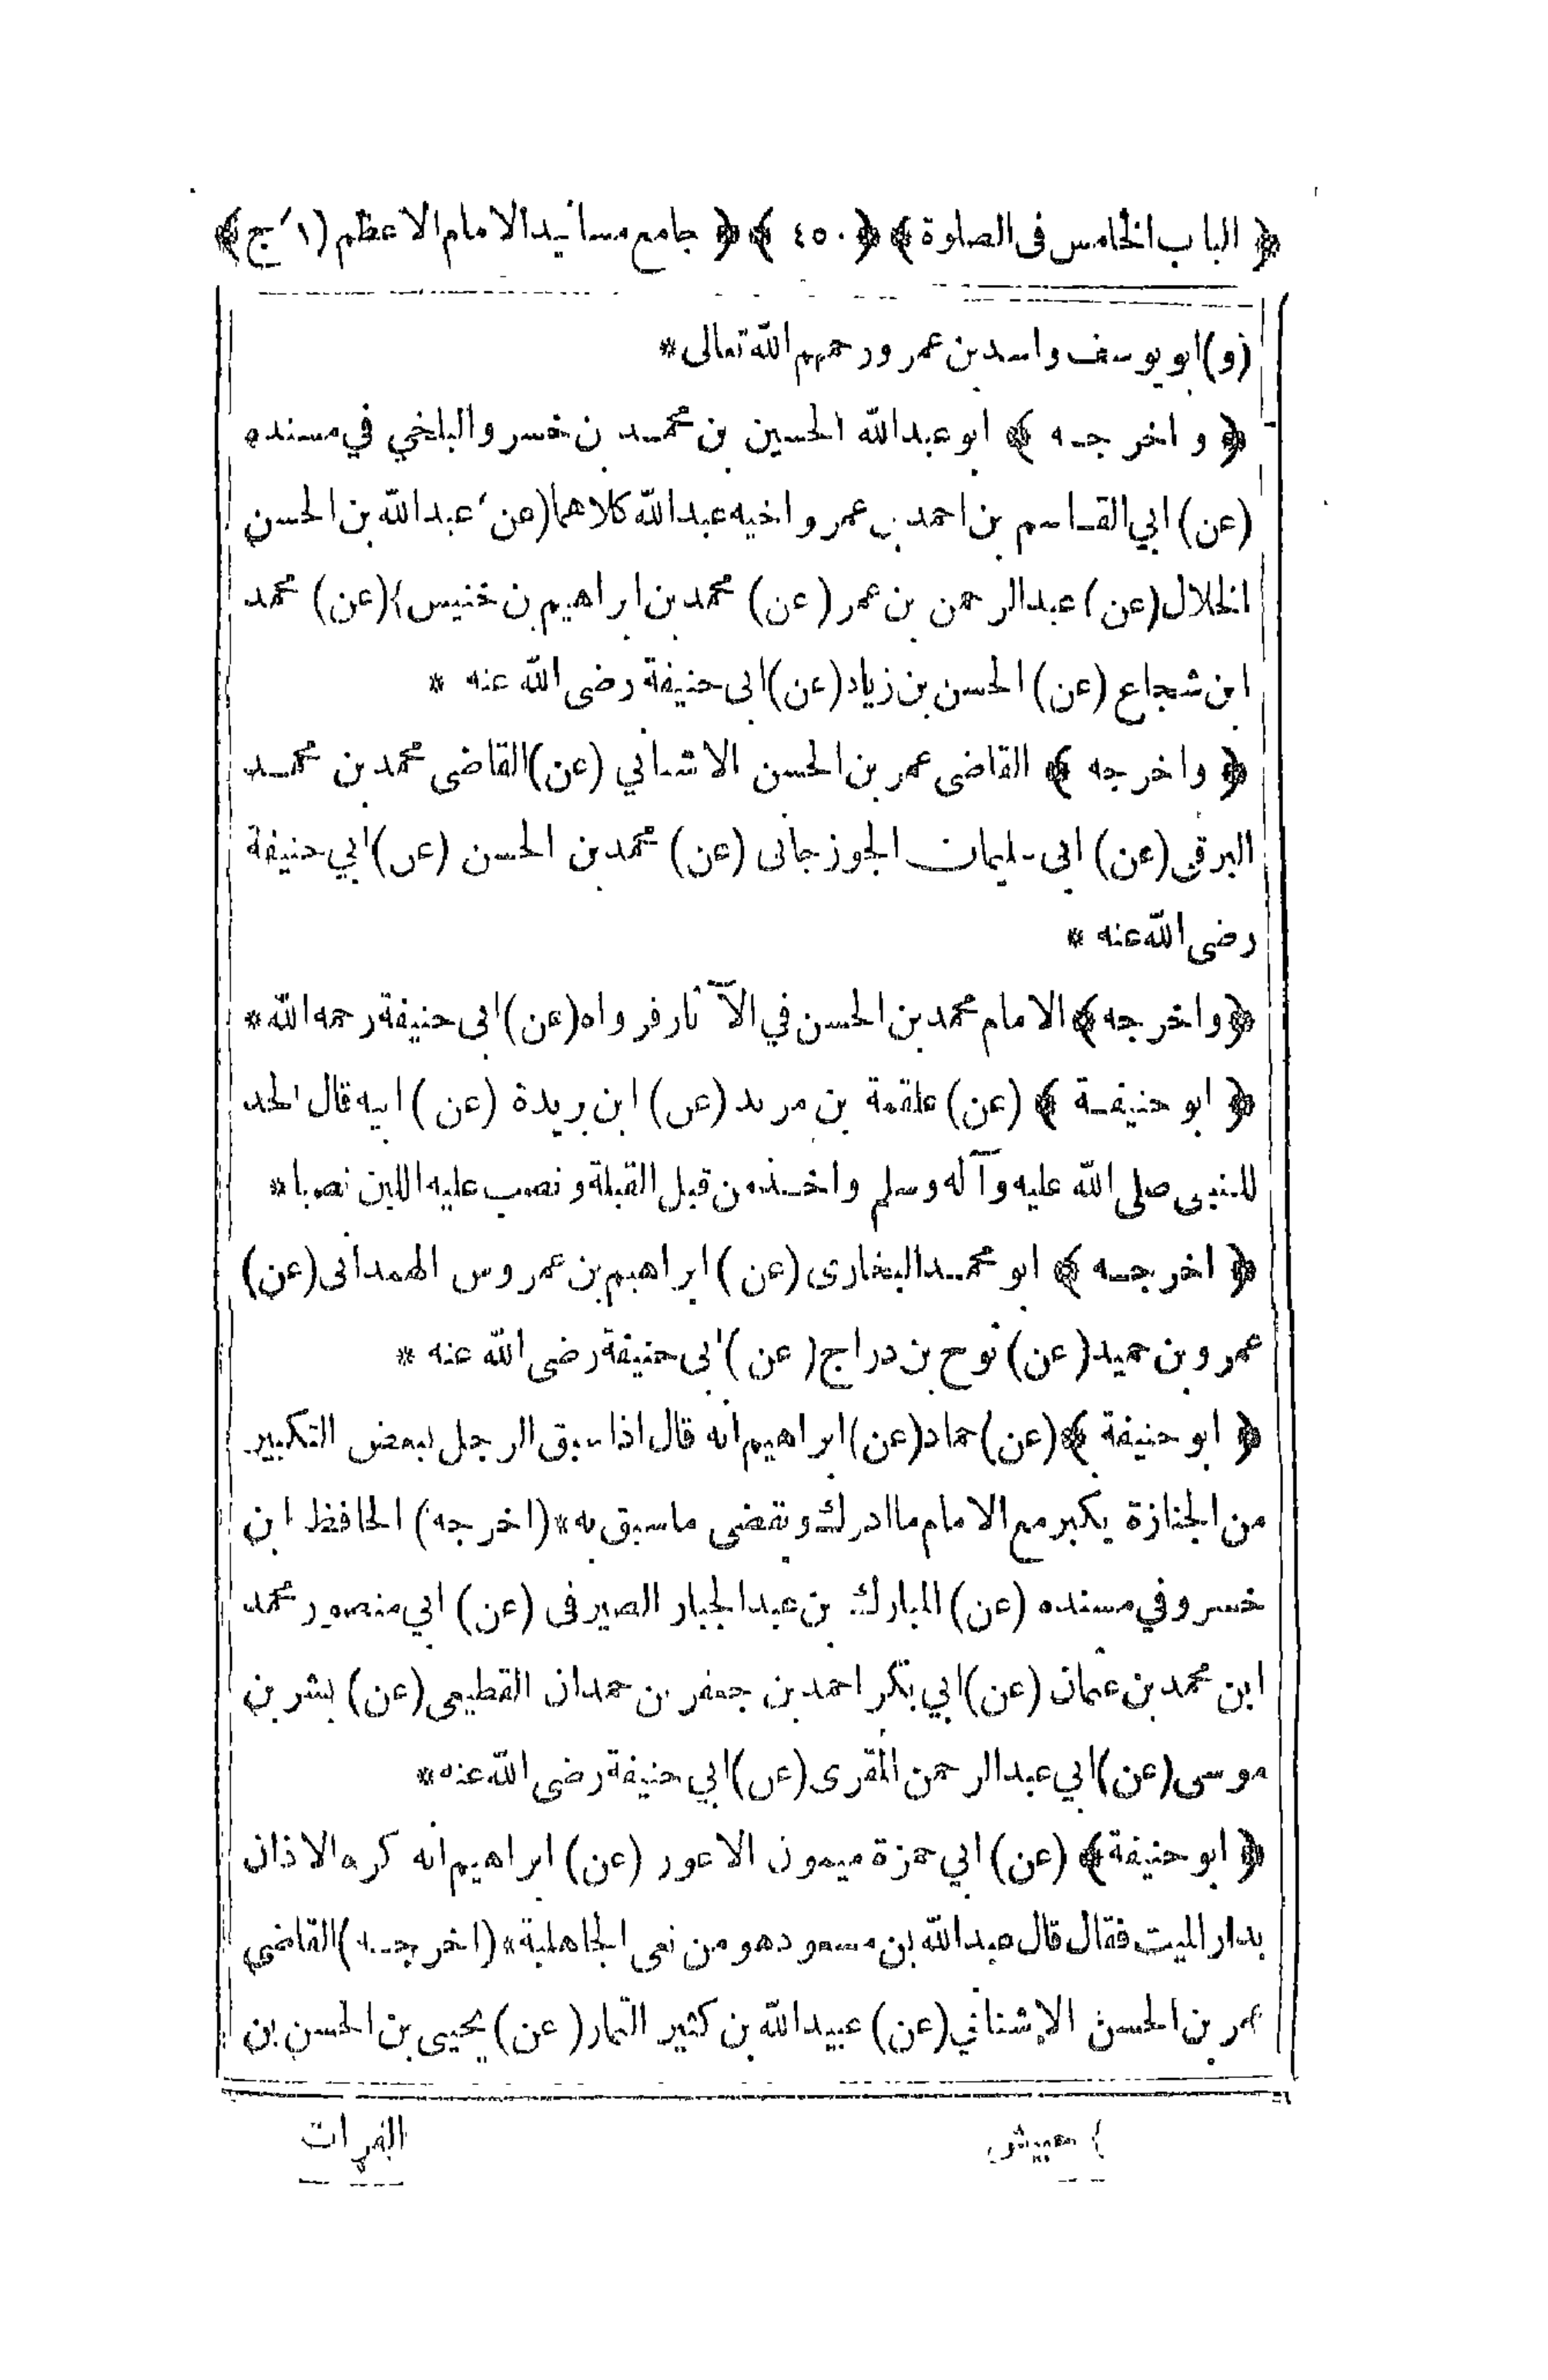 ﴿ الباب الخامس فى الصلوة ﴾ ﴿ ٤٥٠ ﴾ ﴿ جامع مسانيد الامام الاعظم (١ ج) ﴾
(و) ابو يوسف واسد بن عمرو رحمهم الله تعالى *
﴿ واخرجه ﴾ ابو عبدالله الحسين بن محمد بن خسرو البلخي في مسنده
(عن) ابي القاسم بن احمد بن عمر واخيه عبدالله كلاهما (عن) عبدالله بن الحسن
الخلال (عن) عبدالرحمن بن عمر (عن) محمد بن ابراهيم بن خنيس } (عن) محمد
ابن شجاع (عن) الحسن بن زياد (عن) ابى حنيفة رضى الله عنه *
﴿ واخرجه ﴾ القاضى عمر بن الحسن الاشناني (عن) القاضى محمد بن محمد
البرقى (عن) ابى سليمان الجوزجانى (عن) محمد بن الحسن (عن) ابي حنيفة
رضى الله عنه *
﴿ واخرجه ﴾ الامام محمد بن الحسن في الآثار فرواه (عن) ابى حنيفة رحمه الله *
﴿ ابو حنيفة ﴾ (عن) علقمة بن مرثد (عن) ابن بريدة (عن) ابيه قال الحد
للنبى صلى الله عليه وآله وسلم واخذ من قبل القبلة ونصب عليه اللبن نصبا *
﴿ اخرجه ﴾ ابو محمد البخارى (عن) ابراهيم بن عمروس الهمدانى (عن)
عمرو بن حميد (عن) نوح بن دراج (عن) ابى حنيفة رضى الله عنه *
﴿ ابو حنيفة ﴾ (عن) حماد (عن) ابراهيم انه قال اذا سبق الرجل ببعض التكبير
من الجنازة يكبر مع الامام ما ادرك ويقضى ما سبق به * (اخرجه) الحافظ ابن
خسرو في مسنده (عن) المبارك بن عبدالجبار الصيرفى (عن) ابي منصور محمد
ابن محمد بن عثمان (عن) ابي بكر احمد بن جعفر بن حمدان القطيعى (عن) بشر بن
موسى (عن) ابي عبدالرحمن المقرى (عن) ابي حنيفة رضى الله عنه *
﴿ ابو حنيفة ﴾ (عن) ابي حمزة ميمون الاعور (عن) ابراهيم انه كره الاذان
بدار الميت فقال قال عبدالله بن مسعود هو من نعى الجاهلية * (اخرجه) القاضى
عمر بن الحسن الاشناني (عن) عبيدالله بن كثير التمار (عن) يحيى بن الحسن بن
الفرات